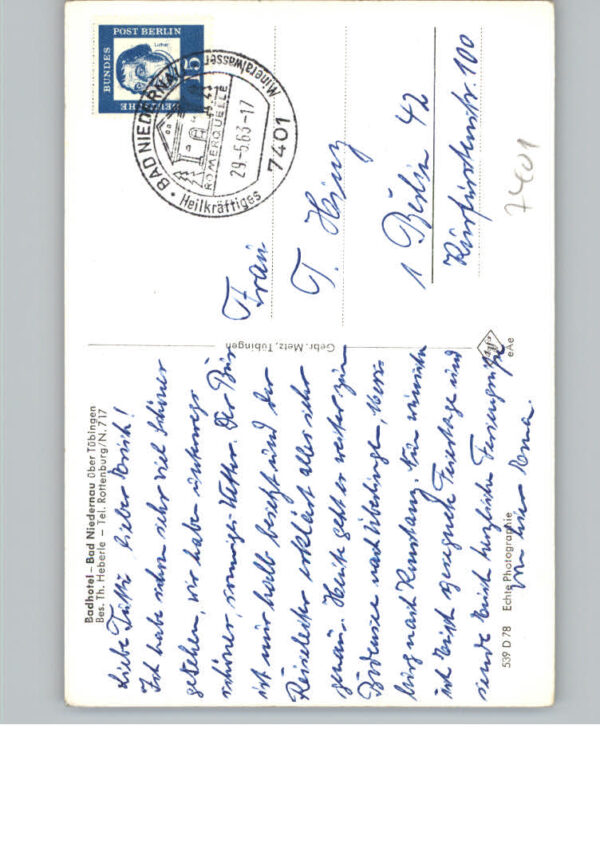 Badhotel – Bad Niedernau über Tübingen
Bes. Th. Heberle – Tel. Rottenburg/N. 717
Liebe lieber Erich!
Ich habe schon sehr viel Schönes
gesehen, wir haben unterwegs
schönes, sonniges Wetter. Der Bus
ist nur halb besetzt und der
Reiseleiter erklärt alles sehr
genau. Heute geht es weiter zum
Bodensee nach Überlingen,
burg nach Konstanz. Nun wünsche
ich Euch gesegnete Feiertage und
sende Euch herzliche Feriengrüße
Eure Oma.
539 D 78 Echte Photographie
Gebr. Metz, Tübingen
Agfa
eAe
DEUTSCHE BUNDESPOST BERLIN
Luther
15
BAD NIEDERNAU
Heilkräftiges Mineralwasser
RÖMERQUELLE
29.-5.63.-17
7401
Frau
T. Heinz
1 Berlin 42
Kurfürstenstr. 100
7401